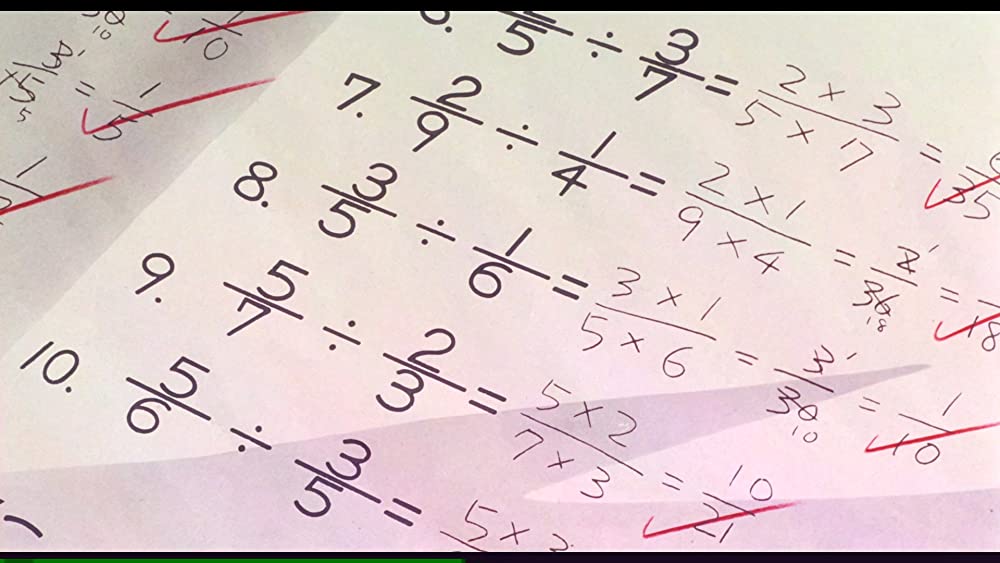 2/5 ÷ 3/7 = 2 × 3 / 5 × 7 = 6/35
7. 2/9 ÷ 1/4 = 2 × 1 / 9 × 4 = 2/36 = 1/18
8. 3/5 ÷ 1/6 = 3 × 1 / 5 × 6 = 3/30 = 1/10
9. 5/7 ÷ 2/3 = 5 × 2 / 7 × 3 = 10/21
10. 5/6 ÷ 3/5 = 5 × 3